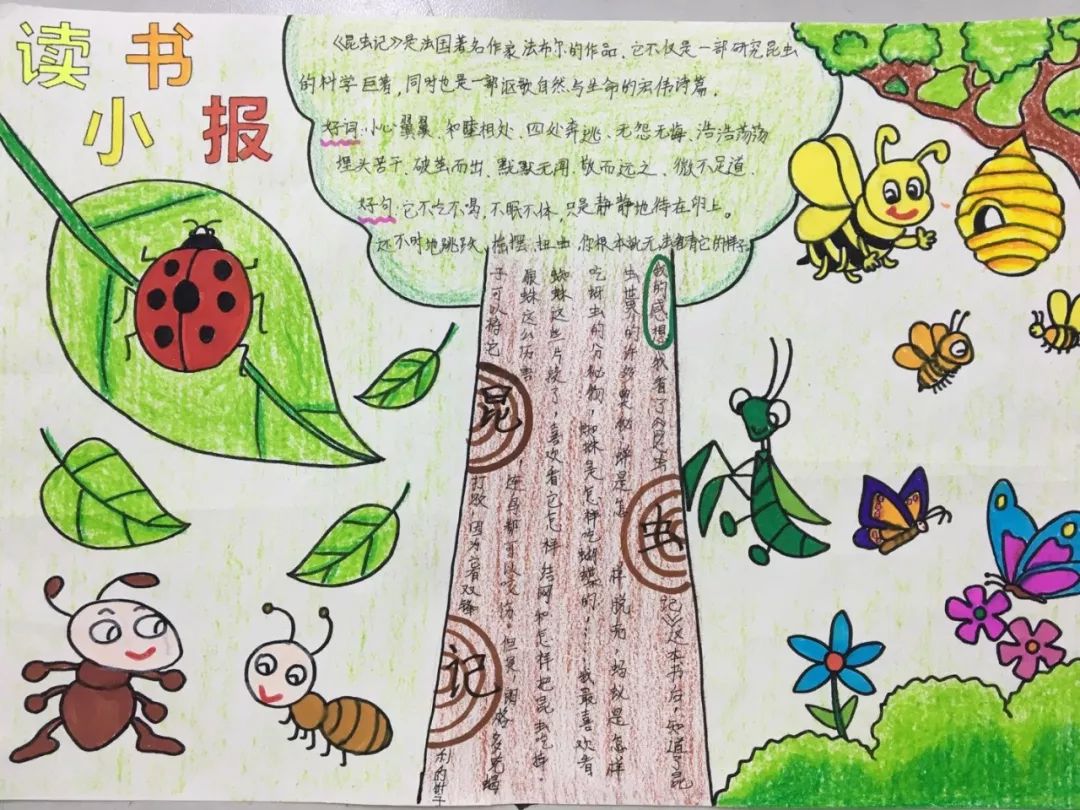 读书
小报
《昆虫记》是法国著名作家法布尔的作品，它不仅是一部研究昆虫
的科学巨著，同时也是一部讴歌自然与生命的宏伟诗篇。
好词：小心翼翼、和睦相处、四处奔逃、无怨无悔、浩浩荡荡
埋头苦干、破茧而出、默默无闻、敬而远之、微不足道．
好句：它不吃不喝，不眠不休，只是静静地待在卵上。
还不时地跳跃，摇摆，扭曲，你根本就无法看清它的样子
我的感想：我看了《昆虫记》这本书后，知道了昆
虫世界的许许多多奥秘，蝉是怎样脱壳，蚂蚁是怎样
吃蚜虫的分泌物，蜘蛛是怎样吃蝴蝶的！……我最喜欢看
蜘蛛这些片段了，喜欢看它怎样结网和怎样把昆虫吃掉．
狼蛛这么厉害，连鸟都可以咬伤，但是
子可以将它打败，因为它有双
昆
虫
记